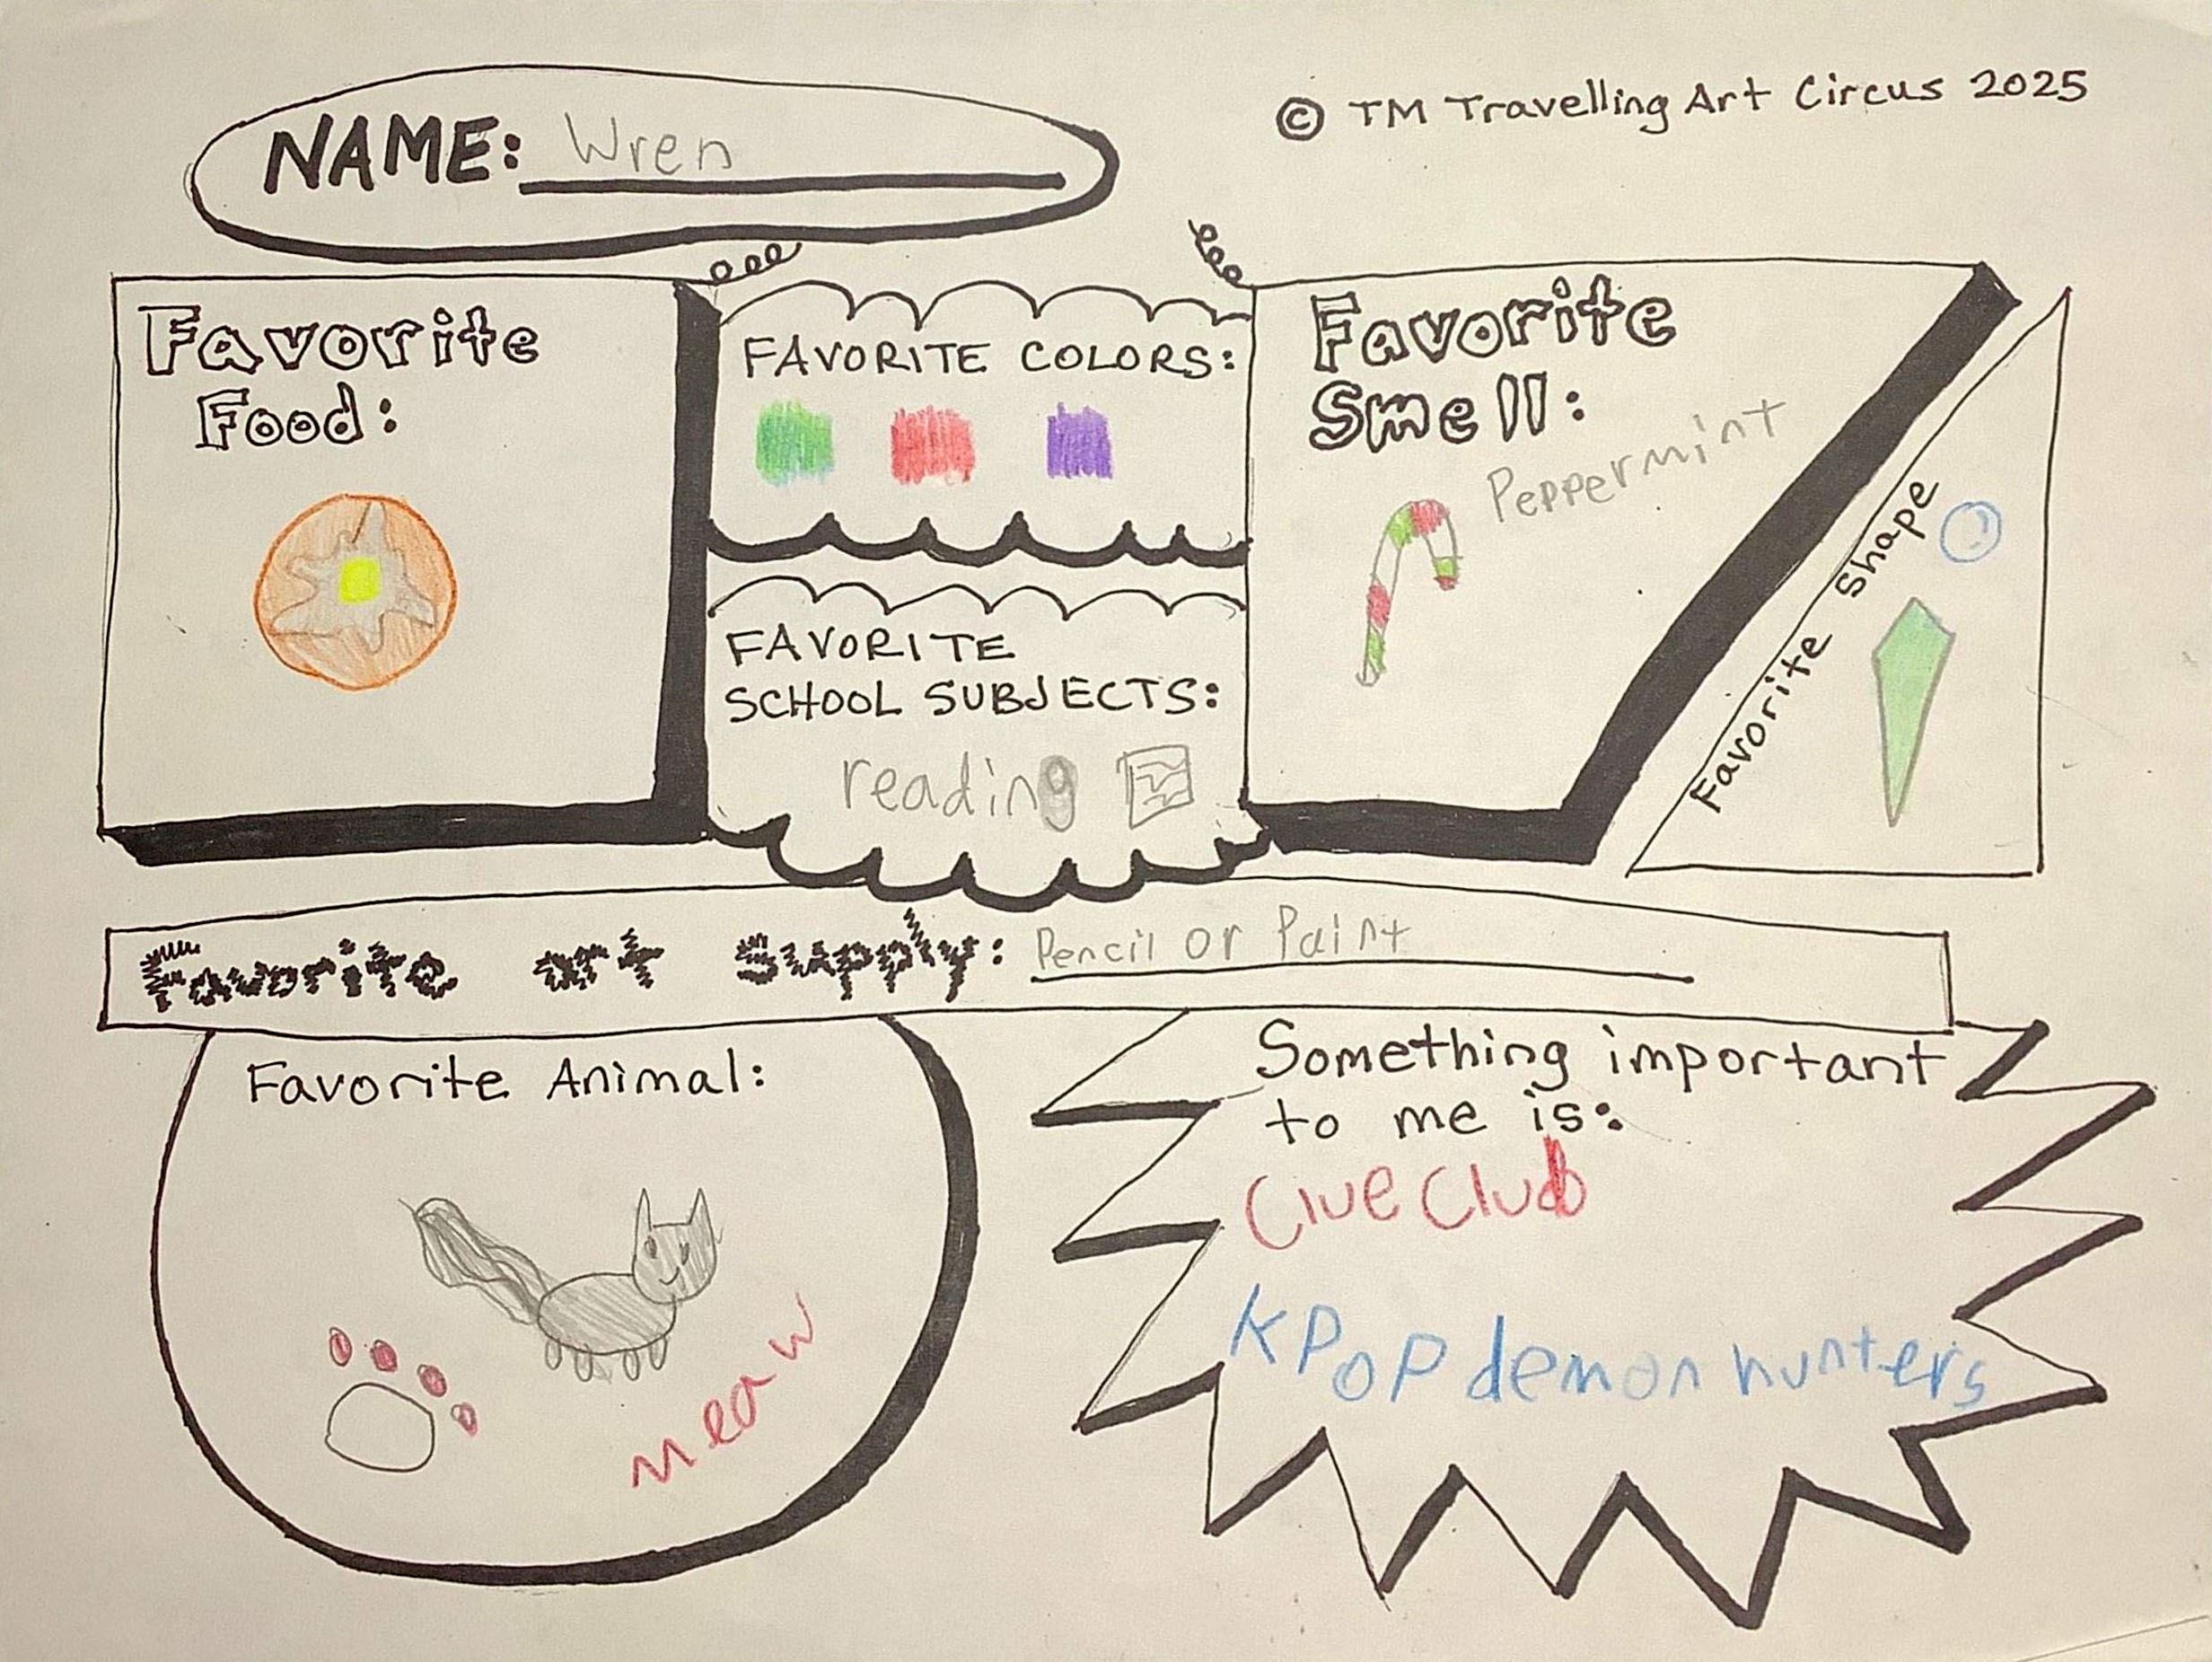 NAME: Wren
© TM Travelling Art Circus 2025
Favorite
Food:
FAVORITE COLORS:
FAVORITE
SCHOOL SUBJECTS:
reading
Favorite
Smell:
Peppermint
Favorite Shape
Favorite art supply: Pencil or Paint
Favorite Animal:
meaw
Something important
to me is:
Clue Club
KPOP demon hunters